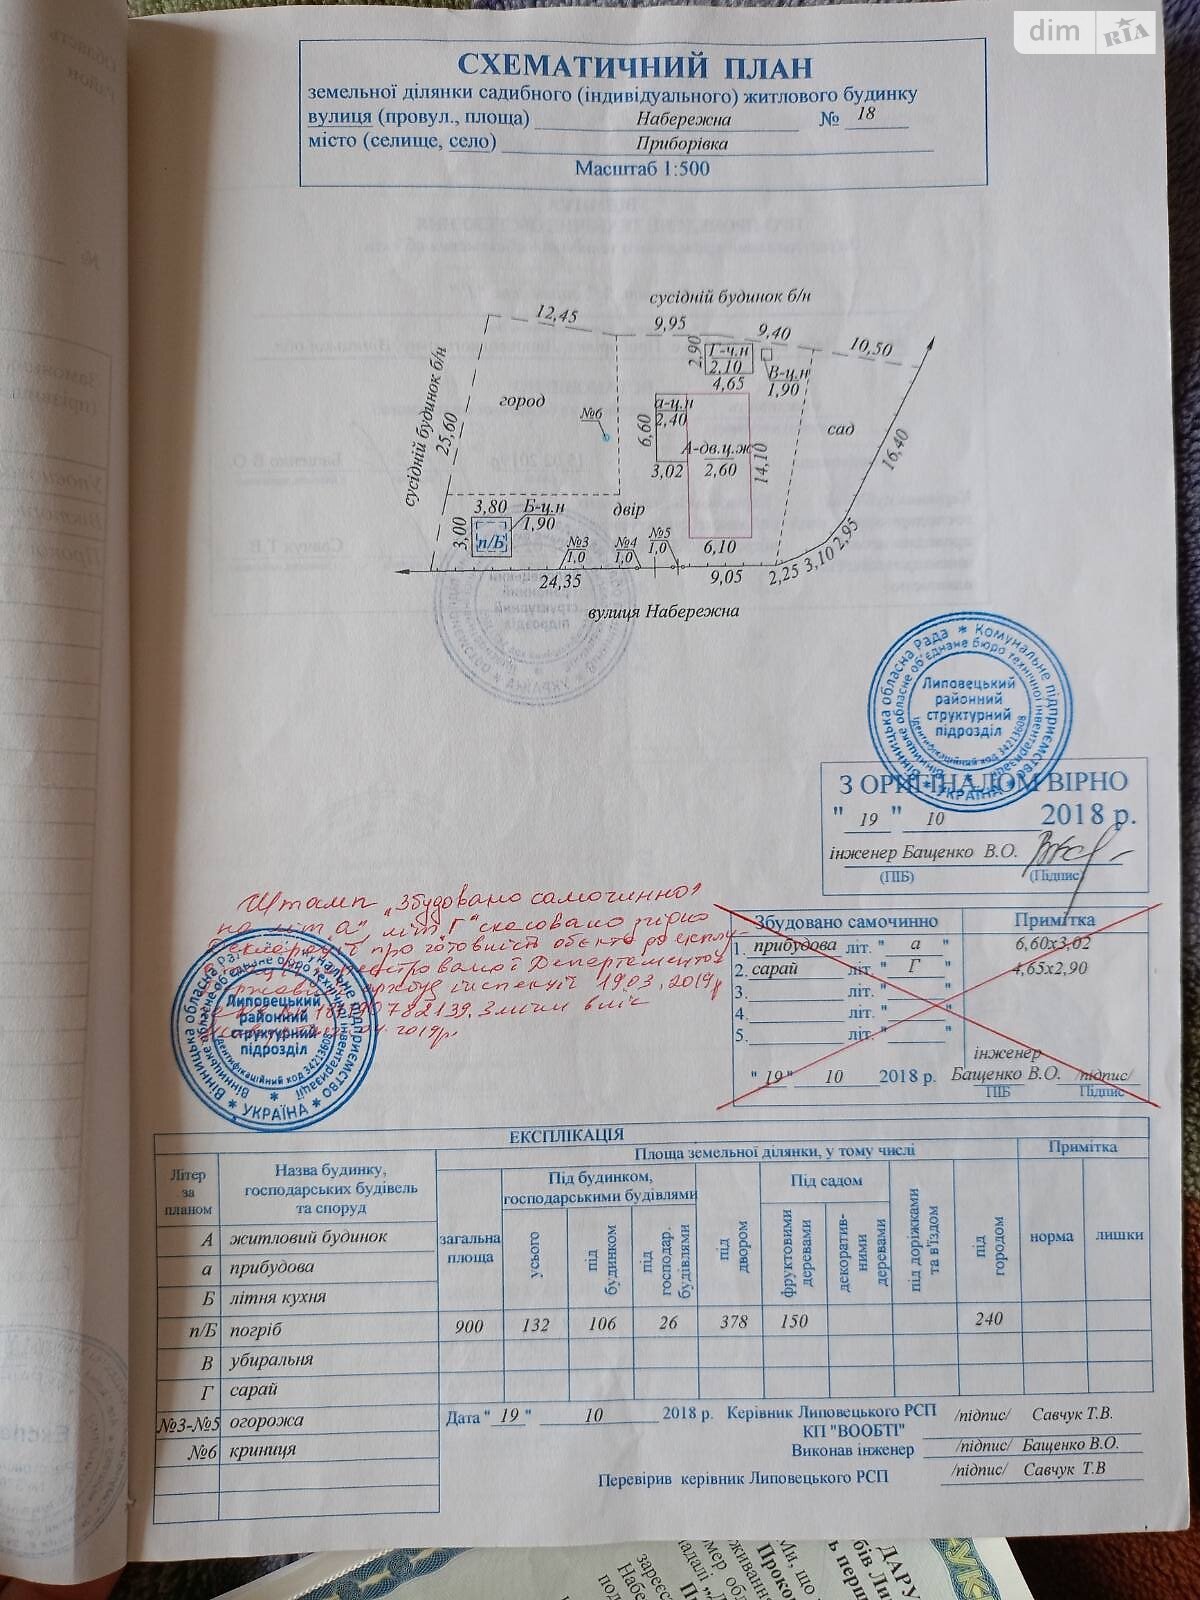 dim RIA
СХЕМАТИЧНИЙ ПЛАН
земельної ділянки садибного (індивідуального) житлового будинку
вулиця (провул., площа) Набережна № 18
місто (селище, село) Приборівка
Масштаб 1:500
сусідній будинок б/н
12,45
9,95
9,40
10,50
сусідній будинок б/н
25,60
город
№6
2,90
Г-ч.н
2,10
4,65
В-ц.н
1,90
а-ц.н
2,40
6,60
3,02
А-дв.ц.ж
2,60
14,10
6,10
сад
16,40
3,80
3,00
п/Б
Б-ц.н
1,90
двір
№3
1,0
№4
1,0
№5
1,0
24,35
9,05
2,25
3,10
2,95
вулиця Набережна
Вінницька обласна Рада * Комунальне підприємство * УКРАЇНА *
Вінницьке обласне об'єднане бюро технічної інвентаризації
Липовецький
районний
структурний
підрозділ
Ідентифікаційний код 34213608
З ОРИГІНАЛОМ ВІРНО
" 19 " 10 2018 р.
інженер Бащенко В.О.
(ПІБ) (Підпис)
Штамп „Збудовано самочинно"
на літ „а", літ „Г" скасовано згідно
Декларації про готовність об'єкта до експлу-
Департаментом
інспекції 19.03.2019р
2019р.
Вінницька обласна Рада * Комунальне підприємство * УКРАЇНА *
Вінницьке обласне об'єднане бюро технічної інвентаризації
Липовецький
районний
структурний
підрозділ
Ідентифікаційний код 34213608
Збудовано самочинно Примітка
1. прибудова літ. " а " 6,60х3,02
2. сарай літ. " Г " 4,65х2,90
3. літ. " "
4. літ. " "
5. літ. " "
інженер
" 19 " 10 2018 р. Бащенко В.О. /підпис/
ПІБ Підпис
ЕКСПЛІКАЦІЯ
Літер за планом
Назва будинку, господарських будівель та споруд
Площа земельної ділянки, у тому числі
Примітка
загальна площа
Під будинком, господарськими будівлями
усього
під будинком
під господар. будівлями
під двором
Під садом
фруктовими деревами
декоратив-ними деревами
під доріжками та в'їздом
під городом
норма
лишки
А житловий будинок
а прибудова
Б літня кухня
п/Б погріб 900 132 106 26 378 150 240
В убиральня
Г сарай
№3-№5 огорожа
№6 криниця
Дата " 19 " 10 2018 р. Керівник Липовецького РСП /підпис/ Савчук Т.В.
КП "ВООБТІ"
Виконав інженер /підпис/ Бащенко В.О.
Перевірив керівник Липовецького РСП /підпис/ Савчук Т.В